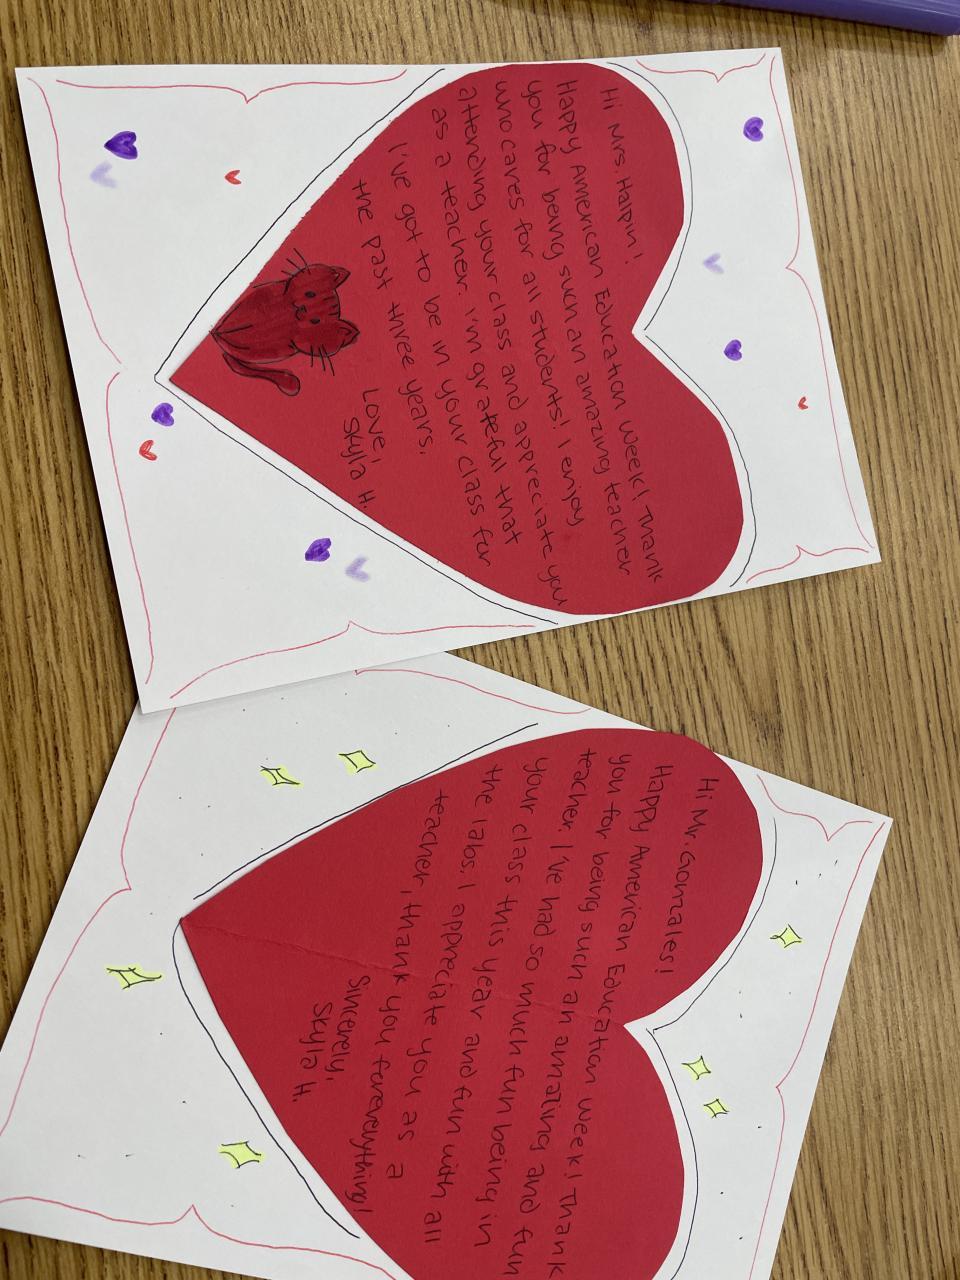 Hi Mrs. Halpin!
Happy American Education Week! Thank
you for being such an amazing teacher
who cares for all students! I enjoy
attending your class and appreciate you
as a teacher. I'm grateful that
I've got to be in your class for
the past three years.
Love,
Skyla H.
Hi Mr. Gonzales!
Happy American Education Week! Thank
you for being such an amazing and fun
teacher. I've had so much fun being in
your class this year and fun with all
the labs. I appreciate you as a
teacher, thank you foreverything!
Sincerely,
Skyla H.